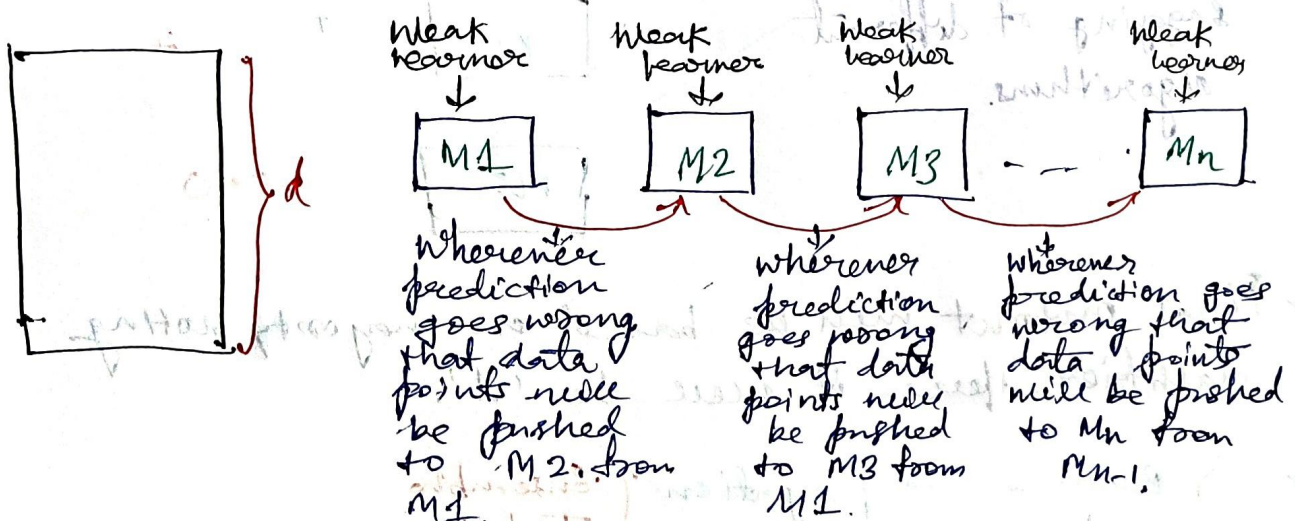 Weak
learner
Weak
learner
Weak
learner
Weak
learner
M1
M2
M3
- - -
Mn
d
Whenever
prediction
goes wrong
that data
points will
be pushed
to M2 from
M1.
whenever
prediction
goes wrong
that data
points will
be pushed
to M3 from
M1.
whenever
prediction goes
wrong that
data points
will be pushed
to Mn from
Mn-1.